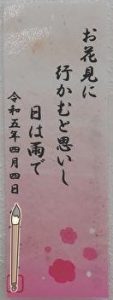 お花見に
行かむと思いし
日は雨で
令和五年四月四日